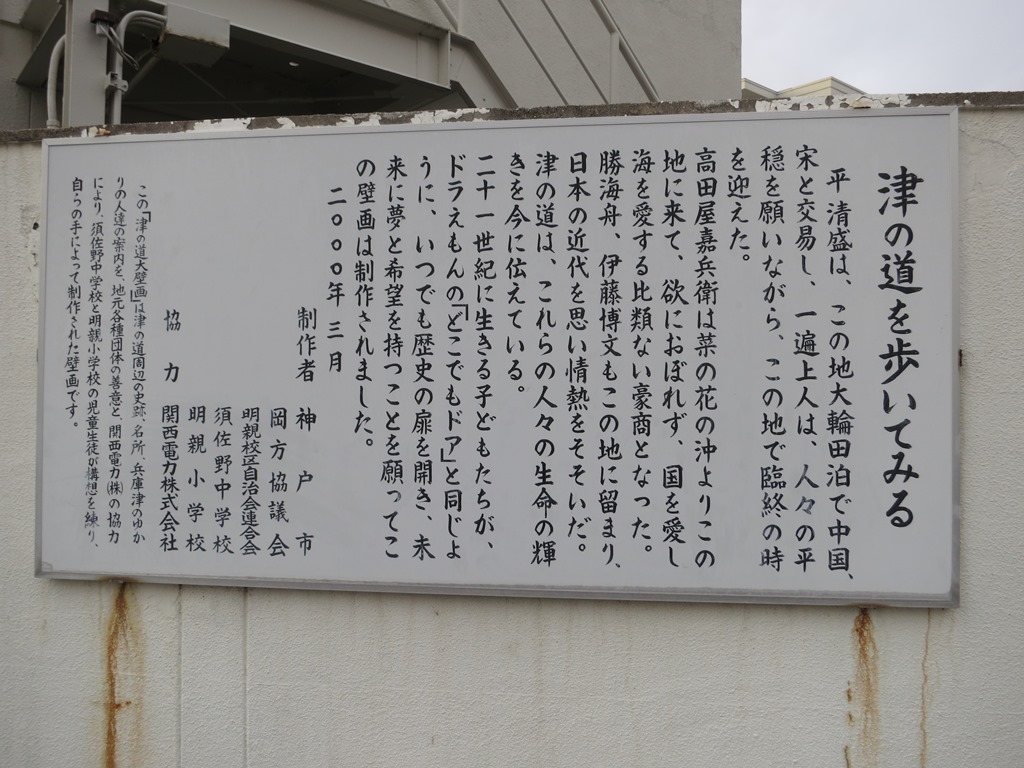 津の道を歩いてみる
平清盛は、この地大輪田泊で中国、
宋と交易し、一遍上人は、人々の平
穏を願いながら、この地で臨終の時
を迎えた。
高田屋嘉兵衛は菜の花の沖よりこの
地に来て、欲におぼれず、国を愛し
海を愛する比類ない豪商となった。
勝海舟、伊藤博文もこの地に留まり、
日本の近代を思い情熱をそそいだ。
津の道は、これらの人々の生命の輝
きを今に伝えている。
二十一世紀に生きる子どもたちが、
ドラえもんの「どこでもドア」と同じよ
うに、いつでも歴史の扉を開き、未
来に夢と希望を持つことを願ってこ
の壁画は制作されました。
二〇〇〇年 三月
制作者 神戸市
岡方協議会
明親校区自治会連合会
須佐野中学校
明親小学校
協力 関西電力株式会社
この「津の道大壁画」は津の道周辺の史跡、名所、兵庫津のゆか
りの人達の案内を、地元各種団体の善意と、関西電力㈱の協力
により、須佐野中学校と明親小学校の児童生徒が構想を練り、
自らの手によって制作された壁画です。